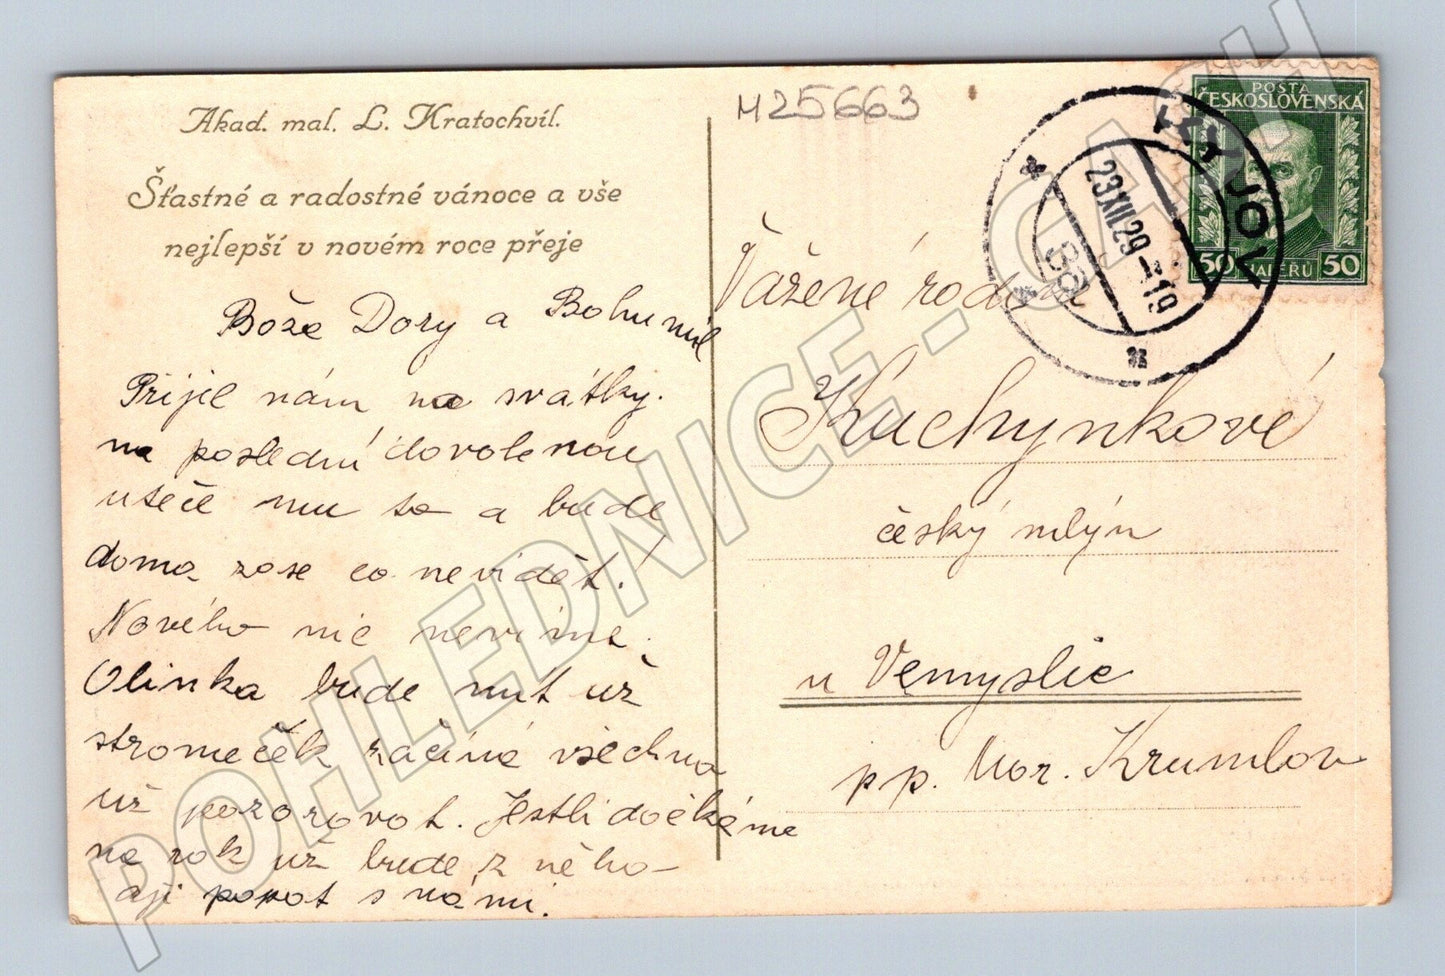 Akad. mal. L. Kratochvíl.
Šťastné a radostné vánoce a vše
nejlepší v novém roce přeje
Bože Dory a Bohumil
Přijel nám na svátky.
na poslední dovolenou
uteče mu to a bude
doma zase co nevidět!
Nového nic nevíme.
Olinka bude mít už
stromeček začíná všechno
už pozorovat. Jestli dočkáme
na rok už bude z něho
aji popot s námi.
M25663
POSTA
ČESKOSLOVENSKÁ
50 HALÉŘŮ 50
KYJOV
23.XII.29-19
8a
Vážená rodina
Kuchynkové
český mlýn
u Vemyslic
pp. Mor. Krumlov
POHLEDNICE - GALH